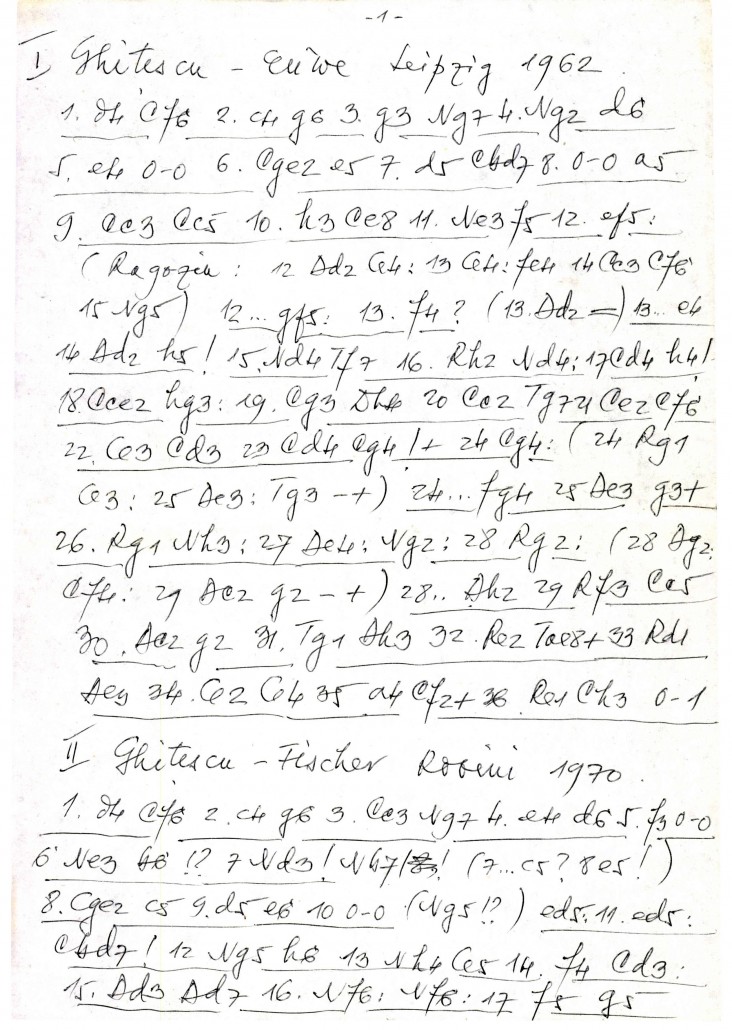 -1-
I Ghitescu - Euwe Leipzig 1962.
1. d4 Cf6 2. c4 g6 3. g3 Ng7 4. Ng2 d6
5. e4 0-0 6. Cge2 e5 7. d5 Cbd7 8. 0-0 a5
9. Cc3 Cc5 10. h3 Ce8 11. Ne3 f5 12. ef5:
(Ragozin: 12 Dd2 Ce4: 13 Ce4: fe4 14 Cc3 Cf6
15 Ng5) 12... gf5: 13. f4? (13. Dd2 =) 13... e4
14 Dd2 h5! 15. Nd4 Tf7 16. Rh2 Nd4: 17 Cd4 h4!
18 Cce2 hg3: 19. Cg3 Dh4 20 Cc2 Tg7 21 Ce2 Cf6
22. Ce3 Cd3 23 Cd4 Cg4!+ 24 Cg4: (24 Rg1
Ce3: 25 De3: Tg3 -+) 24... fg4 25 De3 g3+
26. Rg1 Nh3: 27 De4: Ng2: 28 Rg2: (28 Dg2:
Cf4: 29 Dc2 g2 -+) 28.. Dh2 29 Rf3 Cc5
30. Dc2 g2 31. Tg1 Dh3 32. Re2 Tae8+ 33 Rd1
De3 34. Ce2 Ce4 35 a4 Cf2+ 36 Re1 Ch3 0-1
II Ghitescu - Fischer Rovini 1970.
1. d4 Cf6 2. c4 g6 3. Cc3 Ng7 4. e4 d6 5. f3 0-0
6 Ne3 b6 !? 7 Nd3! Nb7! (7... c5? 8 e5!)
8. Cge2 c5 9. d5 e6 10 0-0 (Ng5!?) ed5: 11. ed5:
Cbd7! 12 Ng5 h6 13 Nh4 Ce5 14. f4 Cd3:
15. Dd3 Dd7 16. Nf6: Nf6: 17 f5 g5